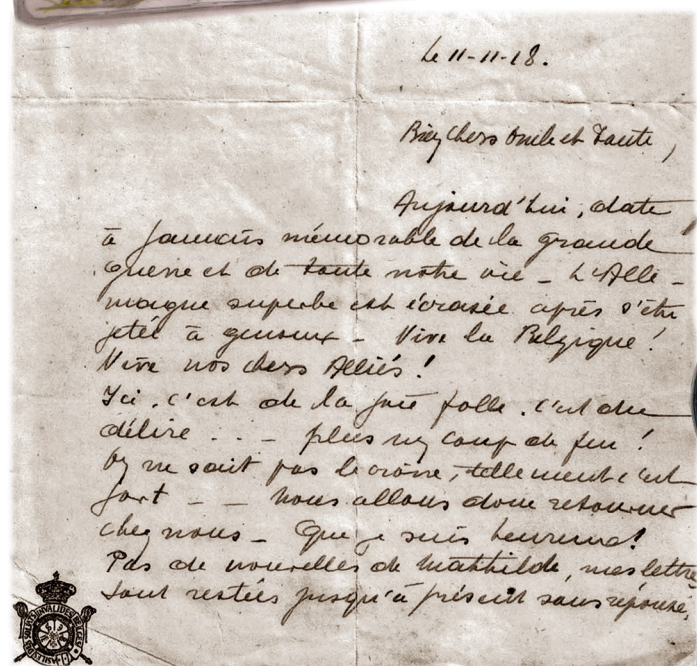 Le 11-11-18.
Bien chers Oncle et Tante,
Aujourd'hui, date
à jamais mémorable de la grande
guerre et de toute notre vie - L'Alle-
magne superbe est écrasée après s'être
jetée à genoux - Vive la Belgique!
Vive nos chers Alliés!
Ici, c'est de la joie folle, c'est du
délire . . - plus un coup de feu!
On ne sait pas le croire, tellement c'est
fort - - Nous allons donc retourner
chez nous - Que je suis heureux!
Pas de nouvelles de Mathilde, mes lettres
sont restées jusqu'à présent sans réponse.